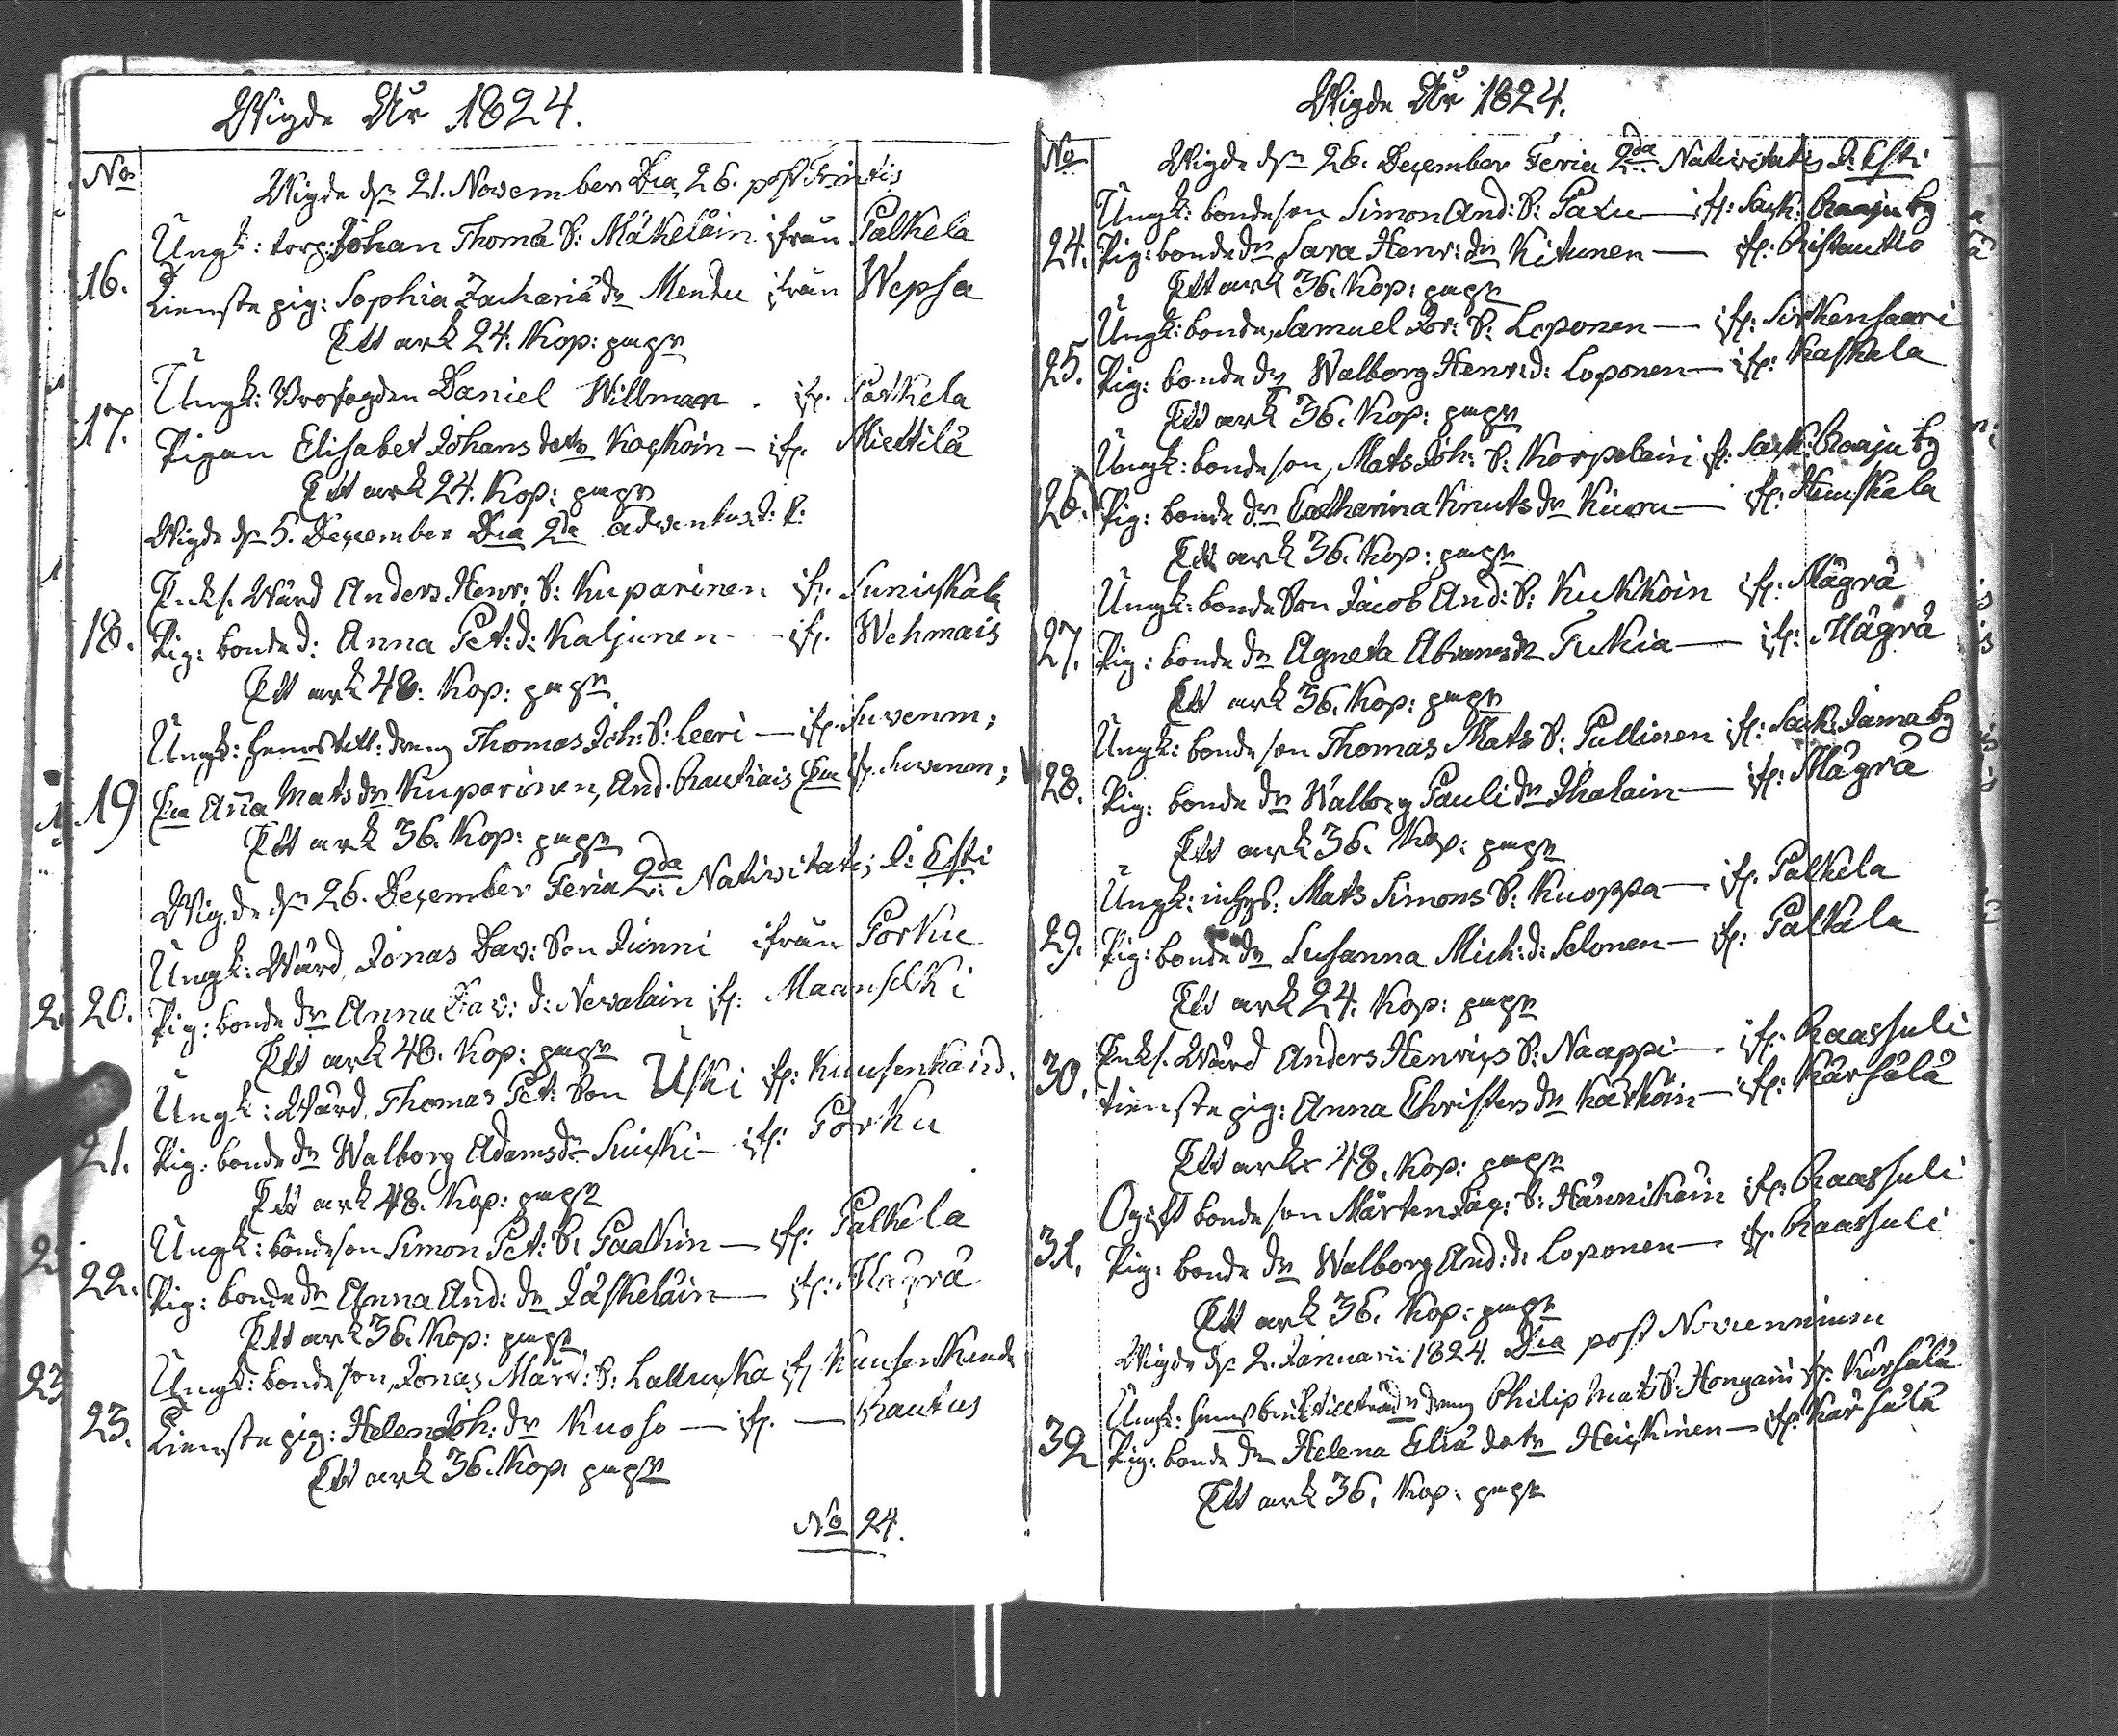 Wigde År 1824.
No
Wigde dn 21. November Dca 26. post Trinitis
Ungk: torp: Johan Thomæ S: Mäkeläin ifrån Palkela
16.
Tienste pig: Sophia Zachariæ dr Mentu ifrån Wepsa
Ett ark 24. Kop: papr
Ungk: Brofogden Daniel Willman. ifr. Palkela
17.
Pigan Elisabet Johans dotr Kockoin - ifr. Miettilä
Ett ark 24. Kop: papr
Wigde dn 5. December Dca 2da Adventus D:
Enkl. Wärd Anders Henr: S: Kuparinen ifr. Suniskala
18.
Pig: bonde d: Anna Pet: d: Kaljunen - ifr. Wehmais
Ett ark 48. Kop: papr
Ungk: hemstill: dräng Thomas Joh: S: Leeri - ifr. Suvenm;
19
Eca Aña Mats dr Kuparinen, And. Rautiais Eca ifr. Suvenm;
Ett ark 36. Kop: papr
Wigde dn 26. December Feria 2da Nativitatis D: Esti
Ungk: Wärd, Jonas Dav: Son Junni ifrån Porku
20.
Pig: bonde dr Anna Dav: d: Nevalain ifr: Maanselki
Ett ark 48. Kop: papr
Ungk: Wärd, Thomas Pet: Son Uski ifr: Kuusenkand.
21.
Pig: bonde dr Walborg Adams dr Suicki - ifr: Porku
Ett ark 48. Kop: papr
Ungk: bondeson Simon Pet: S: Paakin - ifr: Palkela
22.
Pig: bonde dr Anna And: dr Jäskeläin - ifr: Mägrä
Ett ark 36. Kop: papr
Ungk: bonde son, Jonas Mårt: S: Lallucka ifr Kuusenkanda
23.
Tienste pig: Helena Joh: dr Kuoso - ifr. - Rautus
Ett ark 36. Kop. papr
No 24.
Wigde År 1824.
No
Wigde dn 26. December Feria 2da Nativitatis D: Esti
Ungk: bondeson Simon And: S: Paxu - ifr: Sack: Raaju by
24. Pig: bonde dr Sara Henr: dr Kitunen - ifr: Ristautio
Ett ark 36. Kop: papr
Ungk: bonde, Samuel Jör: S: Loponen - ifr: Sirkensaari
25. Pig: bonde dr Walborg Henr: d: Loponen - ifr: Kaskala
Ett ark 36. Kop: papr
Ungk: bonde son, Mats Joh: S: Korpelain ifr: Sack: Raaju by
26. Pig: bonde dr Catharina Knuts dr Kiuru - ifr: Haukala
Ett ark 36. Kop: papr
Ungk: bonde Son Jacob And: S: Kukkoin ifr: Mägrä
27. Pig: bonde dr Agneta Abrams dr Tukia - ifr: Mägrä
Ett ark 36. Kop: papr
Ungk: bonde son Thomas Mats S: Pullinen ifr: Sack: Jama by
28. Pig: bonde dr Walborg Pauli dr Ihalain - ifr: Mägrä
Ett ark 36. Kop: papr
Ungk: inhys: Mats Simons S: Kuoppa - ifr. Palkela
29. Pig: bonde dr Susanna Mich: d: Silonen - ifr: Palkala
Ett ark 24. Kop: papr
Enkl. Wärd Anders Henrics S: Naappi - ifr. Raassuli
30. tienste pig: Anna Christers dr Kärköin - ifr: Kärsälä
Ett ark 48. Kop: papr
Ogift bonde son Mårten Jac: S: Hännikäin ifr: Raassuli
31. Pig: bonde dr Walborg And: d: Loponen - ifr. Raassuli
Ett ark 36. Kop: papr
Wigde dn 2. Januarii 1824. Dca post Novennium
Ungk: hemsbruk tillträd: dräng Philip Mats S: Hongain ifr: Kärsälä
32 Pig: bonde dr Helena Eliæ dotr Heickinen - ifr: Kärsälä
Ett ark 36. Kop: papr